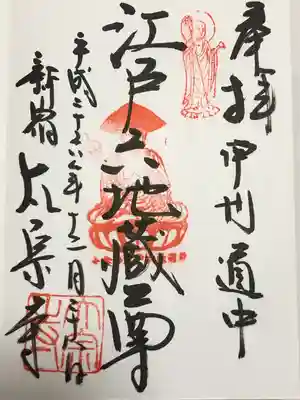 奉拝 甲州道中
江戸六地蔵尊
平成二十六年十二月
新宿 太宗寺